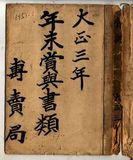 大正三年
年末賞與書類
專賣局